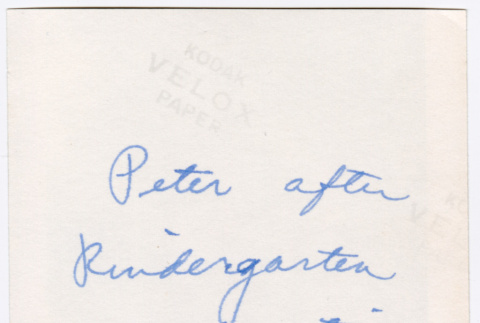 KODAK
VELOX
PAPER
Peter after
Kindergarten